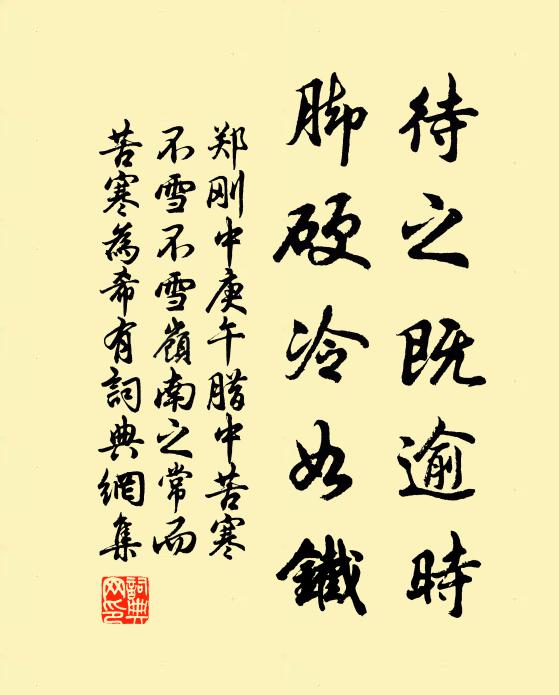 待之既逾時
脚硬冷如鐵
郑刚中庚午腊中苦寒
不雪不雪嶺南之常而
苦寒為希有詞典網集
詞典网印